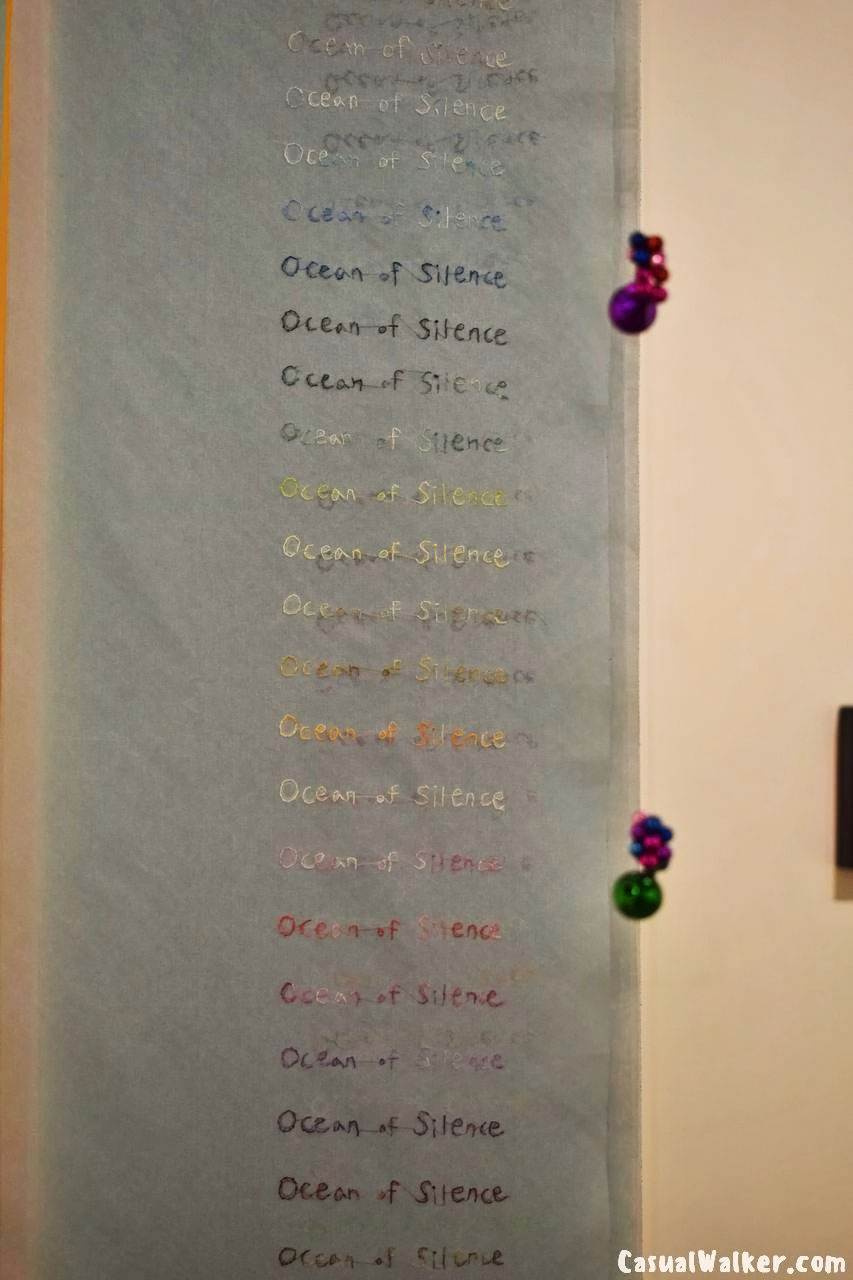 Ocean of Silence
Ocean of Silence
Ocean of Silence
Ocean of Silence
Ocean of Silence
Ocean of Silence
Ocean of Silence
Ocean of Silence
Ocean of Silence
Ocean of Silence
Ocean of Silence
Ocean of Silence
Ocean of Silence
Ocean of Silence
Ocean of Silence
Ocean of Silence
Ocean of Silence
Ocean of Silence
Ocean of Silence
Ocean of Silence
Ocean of Silence
CasualWalker.com